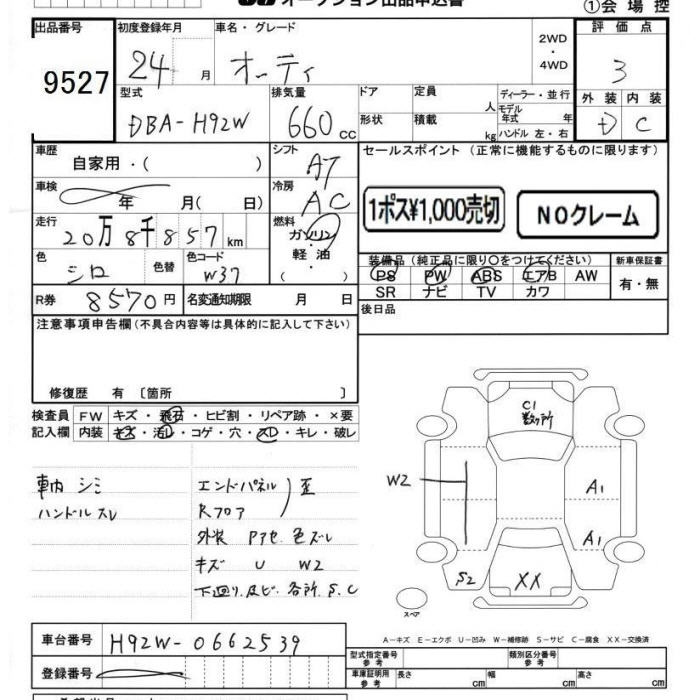 オークション出品申込書
①会場控
出品番号 初度登録年月 車名・グレード 評価点
9527 24 月 オーティ 2WD・4WD 3
型式 排気量 ドア 定員 人 ディーラー・並行 外装 内装
DBA-H92W 660 cc 形状 積載 kg モデル年式 年 ハンドル 左・右 D C
車歴 シフト セールスポイント (正常に機能するものに限ります)
自家用・( ) AT
車検 年 月( 日) 冷房 AC
1ポス¥1,000売切 NOクレーム
走行 20万8千857km 燃料 ガソリン・軽油・( )
色 シロ 色替 色コード W37
装備品 (純正品に限り○をつけてください) 新車保証書
PS PW ABS エアB AW 有・無
SR ナビ TV カワ
R券 8570円 名変通知期限 月 日
後日品
注意事項申告欄 (不具合内容等は具体的に記入して下さい)
修復歴 有 〔箇所 〕
検査員 FW キズ・飛石・ヒビ割・リペア跡・×要
記入欄 内装 キズ・汚レ・コゲ・穴・スレ・キレ・破レ
車内 シミ
ハンドル スレ
エンドパネル
Rフロア
歪
外装 Pアセ.色ズレ
キズ U W2
下回り.及ビ.各所.S.C
C1
数ヶ所
W2
A1
A1
S2
XX
スペア
A-キズ E-エクボ U-凹み W-補修跡 S-サビ C-腐食 XX-交換済
車台番号 H92W-0662539
登録番号
型式指定番号 参考 類別区分番号 参考
車庫証明用 参考 長さ cm 幅 cm 高さ cm